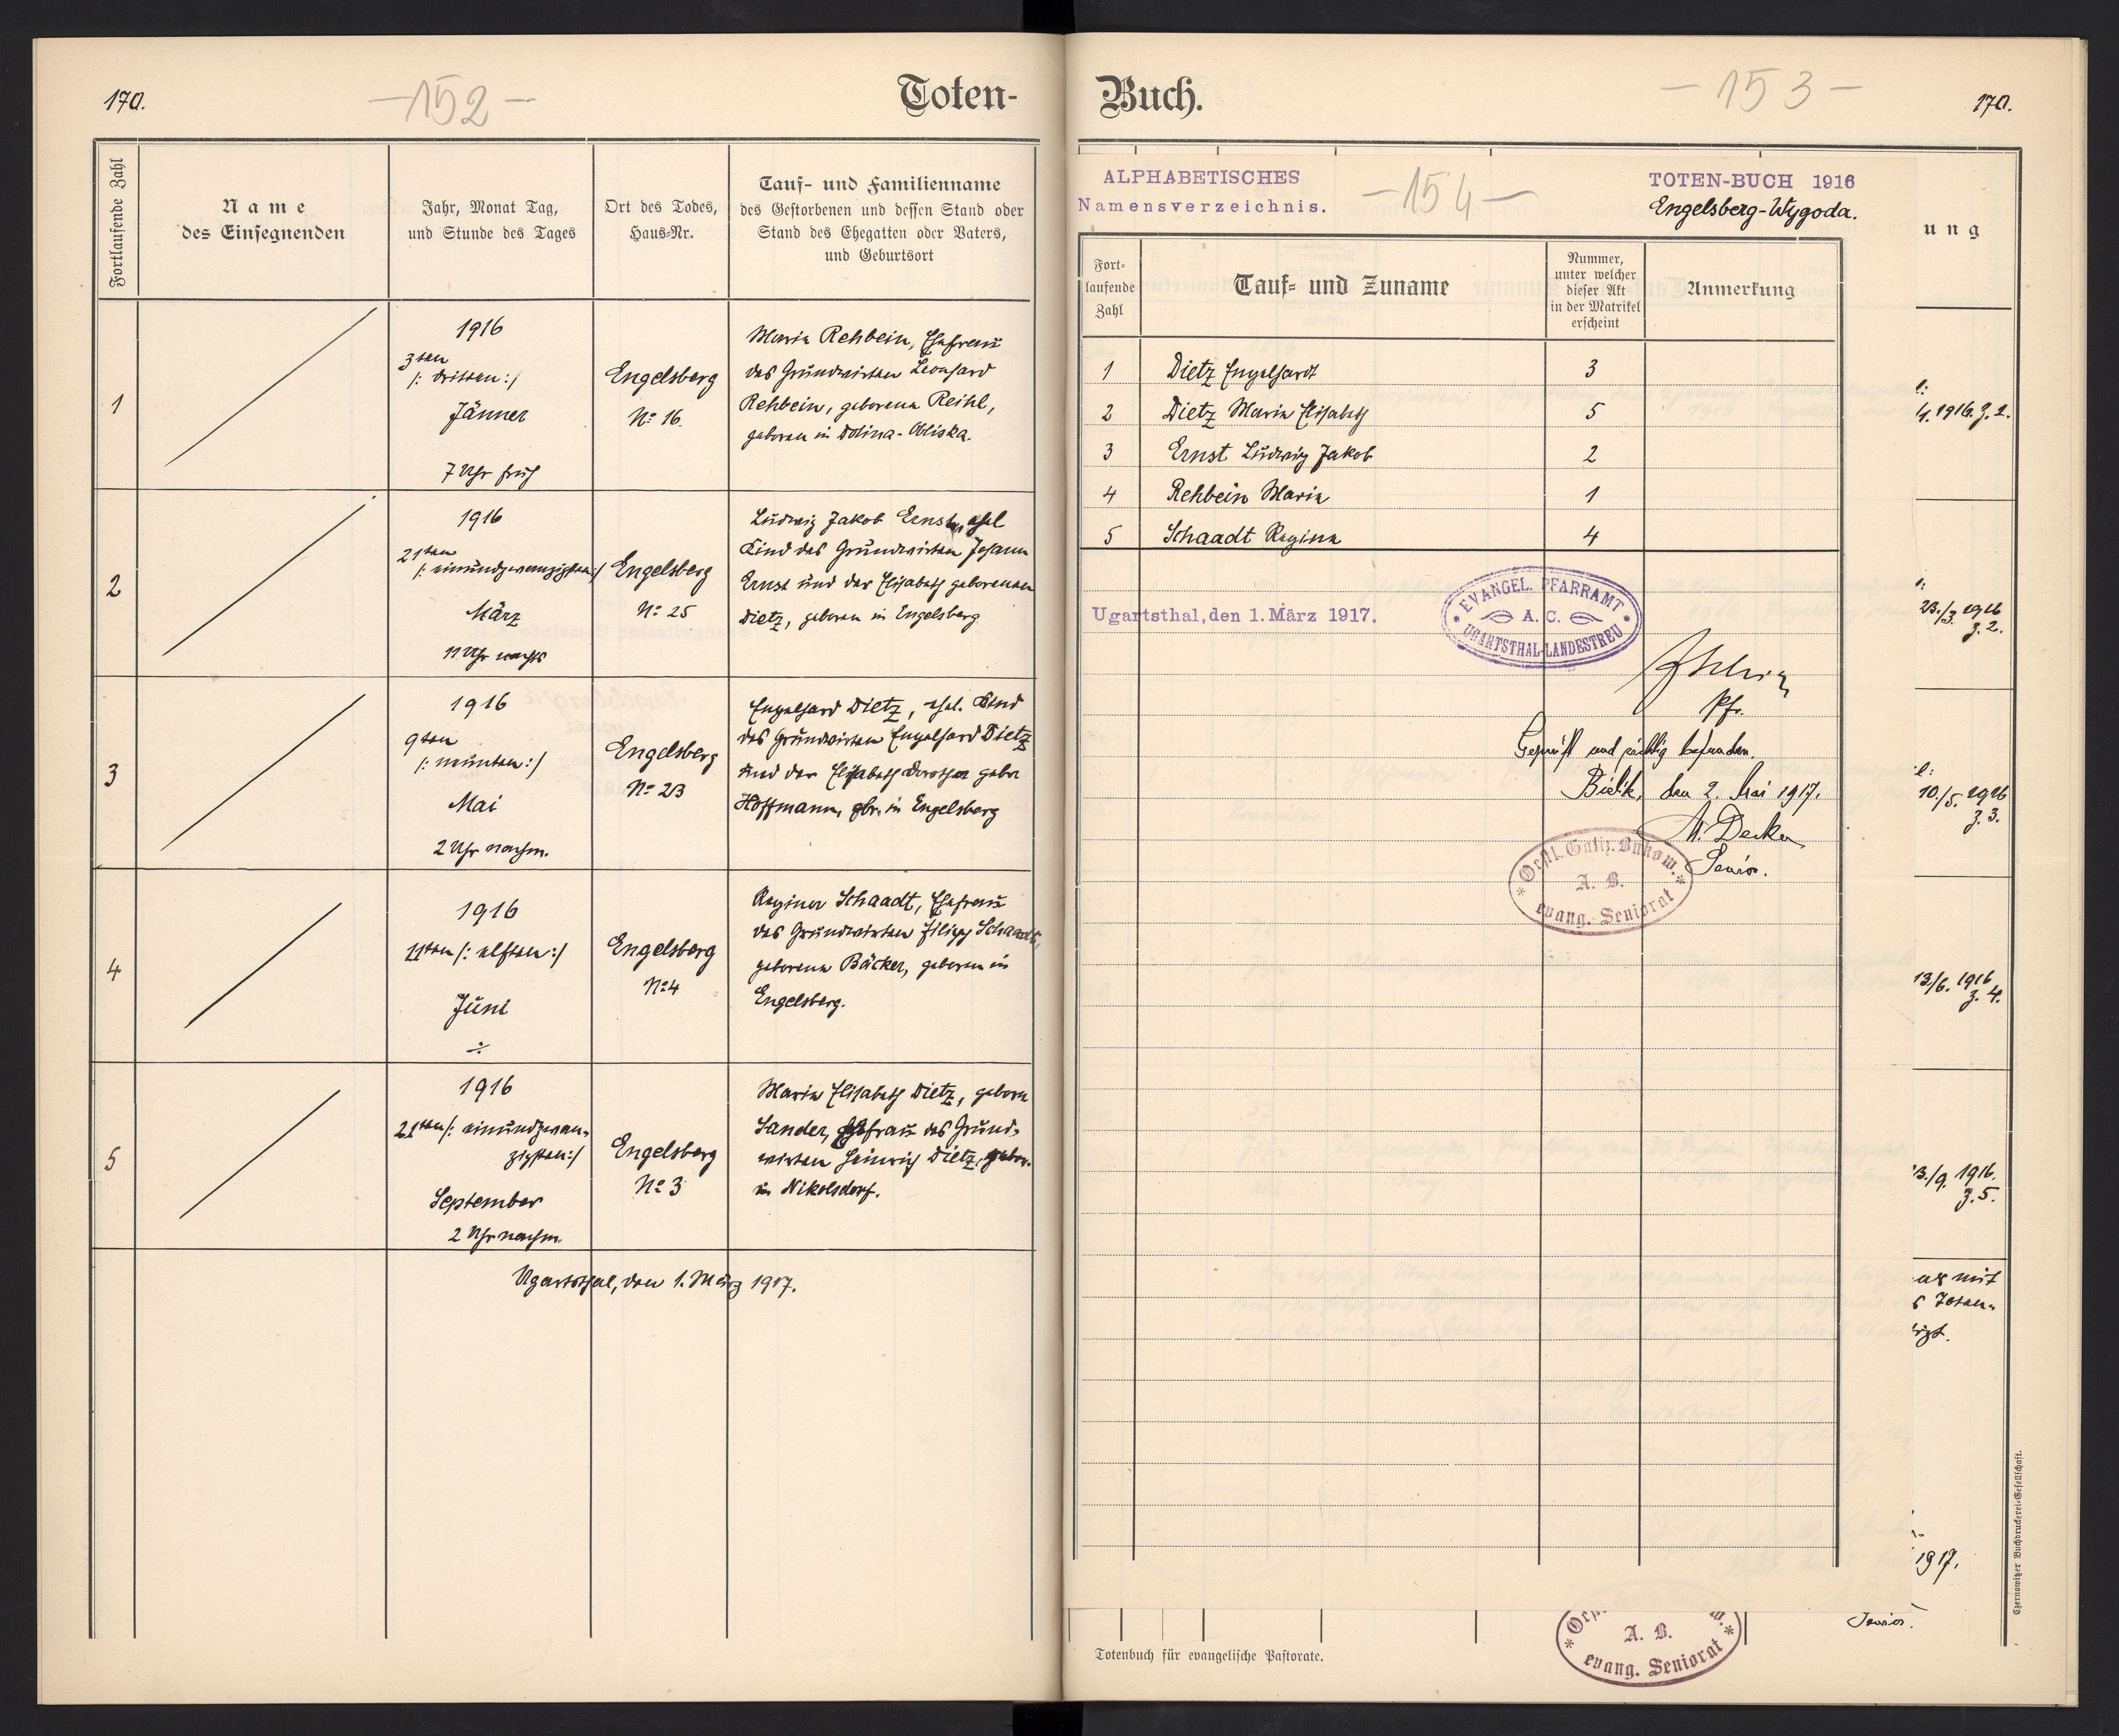 170.
-152-
Toten-
Fortlaufende Zahl
Name
des Einsegnenden
Jahr, Monat Tag,
und Stunde des Tages
Ort des Todes,
Haus-Nr.
Tauf- und Familienname
des Gestorbenen und dessen Stand oder
Stand des Ehegatten oder Vaters,
und Geburtsort
1
1916
3ten
/: dritten :/
Jänner
7 Uhr früh
Engelsberg
No 16.
Maria Rehbein, Ehefrau
des Grundwirten Leonhard
Rehbein, geborene Reihl,
geboren in Dolina-Obliska.
2
1916
21ten
/: einundzwanzigsten :/
März
11 Uhr nachts
Engelsberg
No 25
Ludwig Jakob Ernst, ehel
Kind des Grundwirten Johann
Ernst und der Elisabeth geborenen
Dietz, geboren in Engelsberg
3
1916
9ten
/: neunten :/
Mai
2 Uhr nachm.
Engelsberg
No 23
Engelhard Dietz, ehel. Kind
des Grundwirten Engelhard Dietz
und der Elisabeth Dorothea gebor
Hoffmann, gbr. in Engelsberg
4
1916
11ten /: elften :/
Juni
÷
Engelsberg
No 4
Regina Schaadt, Ehefrau
des Grundwirten Filipp Schaadt,
geborene Bäcker, geboren in
Engelsberg.
5
1916
21ten /: einundzwan-
zigsten :/
September
2 Uhr nachm.
Engelsberg
No 3
Maria Elisabeth Dietz, geborn
Sander, Ehefrau des Grund-
wirten Heinrich Dietz, gebor.
in Nikolsdorf.
Ugartsthal, den 1. März 1917.
Buch.
-153-
170.
ALPHABETISCHES
Namensverzeichnis.
-154-
TOTEN-BUCH 1916
Engelsberg-Wygoda.
Fort-
laufende
Zahl
Tauf- und Zuname
Nummer,
unter welcher
dieser Akt
in der Matrikel
erscheint
Anmerkung
1 Dietz Engelhardt 3
2 Dietz Maria Elisabeth 5
3 Ernst Ludwig Jakob 2
4 Rehbein Maria 1
5 Schaadt Regina 4
Ugartsthal, den 1. März 1917.
EVANGEL. PFARRAMT
A. C.
UGARTSTHAL-LANDESTREU
Pfr.
Geprüft und richtig befunden.
Bielitz, den 2. Mai 1917.
Senior.
Oestl. Galiz. Bukow.
A. B.
evang. Seniorat
ung
4. 1916. z. 2.
23./3. 1916
z. 2.
10./5. 1916
z. 3.
13./6. 1916
z. 4.
3./9. 1916.
z. 5.
mit
Toten-
1917.
Senior.
A. B.
evang. Seniorat
Totenbuch für evangelische Pastorate.
Czernowitzer Buchdruckerei-Gesellschaft.